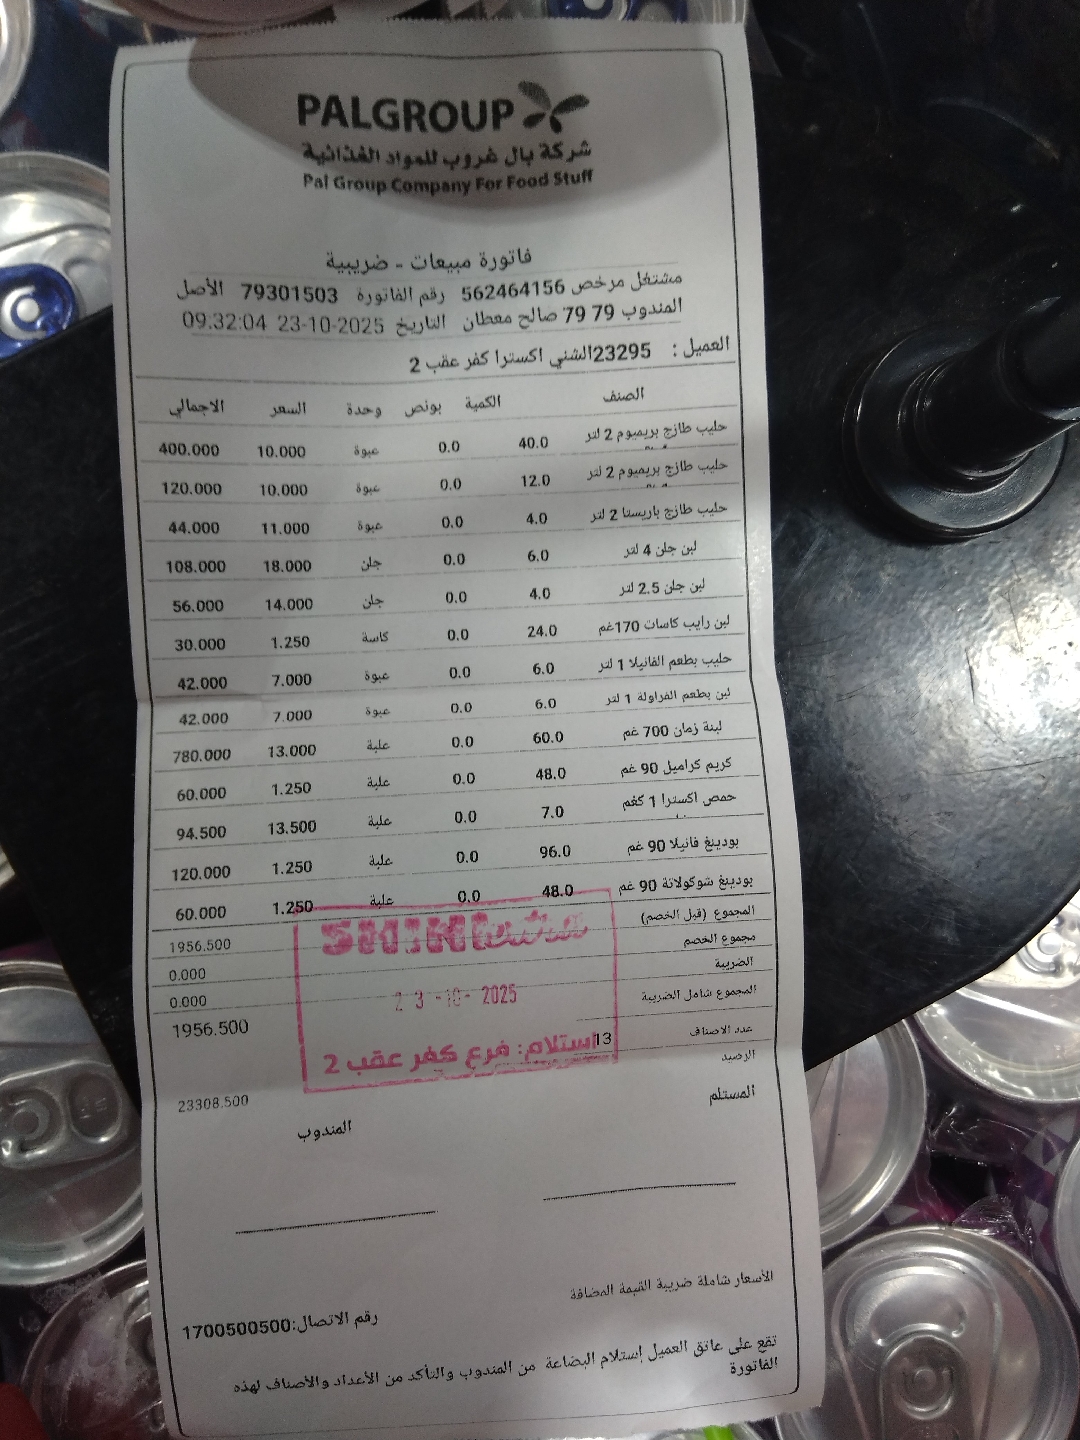 PALGROUP
شركة بال غروب للمواد الغذائية
Pal Group Company For Food Stuff
فاتورة مبيعات - ضريبية
مشتغل مرخص 562464156 رقم الفاتورة 79301503 الأصل
المندوب 79 79 صالح معطان التاريخ 2025-10-23 09:32:04
العميل : 23295الشني اكسترا كفر عقب 2
الصنف الكمية بونص وحدة السعر الاجمالي
حليب طازج بريميوم 2 لتر 40.0 0.0 عبوة 10.000 400.000
حليب طازج بريميوم 2 لتر 12.0 0.0 عبوة 10.000 120.000
حليب طازج باريستا 2 لتر 4.0 0.0 عبوة 11.000 44.000
لبن جلن 4 لتر 6.0 0.0 جلن 18.000 108.000
لبن جلن 2.5 لتر 4.0 0.0 جلن 14.000 56.000
لبن رايب كاسات 170غم 24.0 0.0 كاسة 1.250 30.000
حليب بطعم الفانيلا 1 لتر 6.0 0.0 عبوة 7.000 42.000
لبن بطعم الفراولة 1 لتر 6.0 0.0 عبوة 7.000 42.000
لبنة زمان 700 غم 60.0 0.0 علبة 13.000 780.000
كريم كراميل 90 غم 48.0 0.0 علبة 1.250 60.000
حمص اكسترا 1 كغم 7.0 0.0 علبة 13.500 94.500
بودينغ فانيلا 90 غم 96.0 0.0 علبة 1.250 120.000
بودينغ شوكولاتة 90 غم 48.0 0.0 علبة 1.250 60.000
المجموع (قبل الخصم) 1956.500
مجموع الخصم 0.000
الضريبة 0.000
المجموع شامل الضريبة 1956.500
عدد الاصناف 13
الرصيد 23308.500
23 -10- 2025
استلام: فرع كفر عقب 2
المستلم المندوب
الأسعار شاملة ضريبة القيمة المضافة
رقم الاتصال:1700500500
تقع على عاتق العميل إستلام البضاعة من المندوب والتأكد من الأعداد والأصناف لهذه
الفاتورة